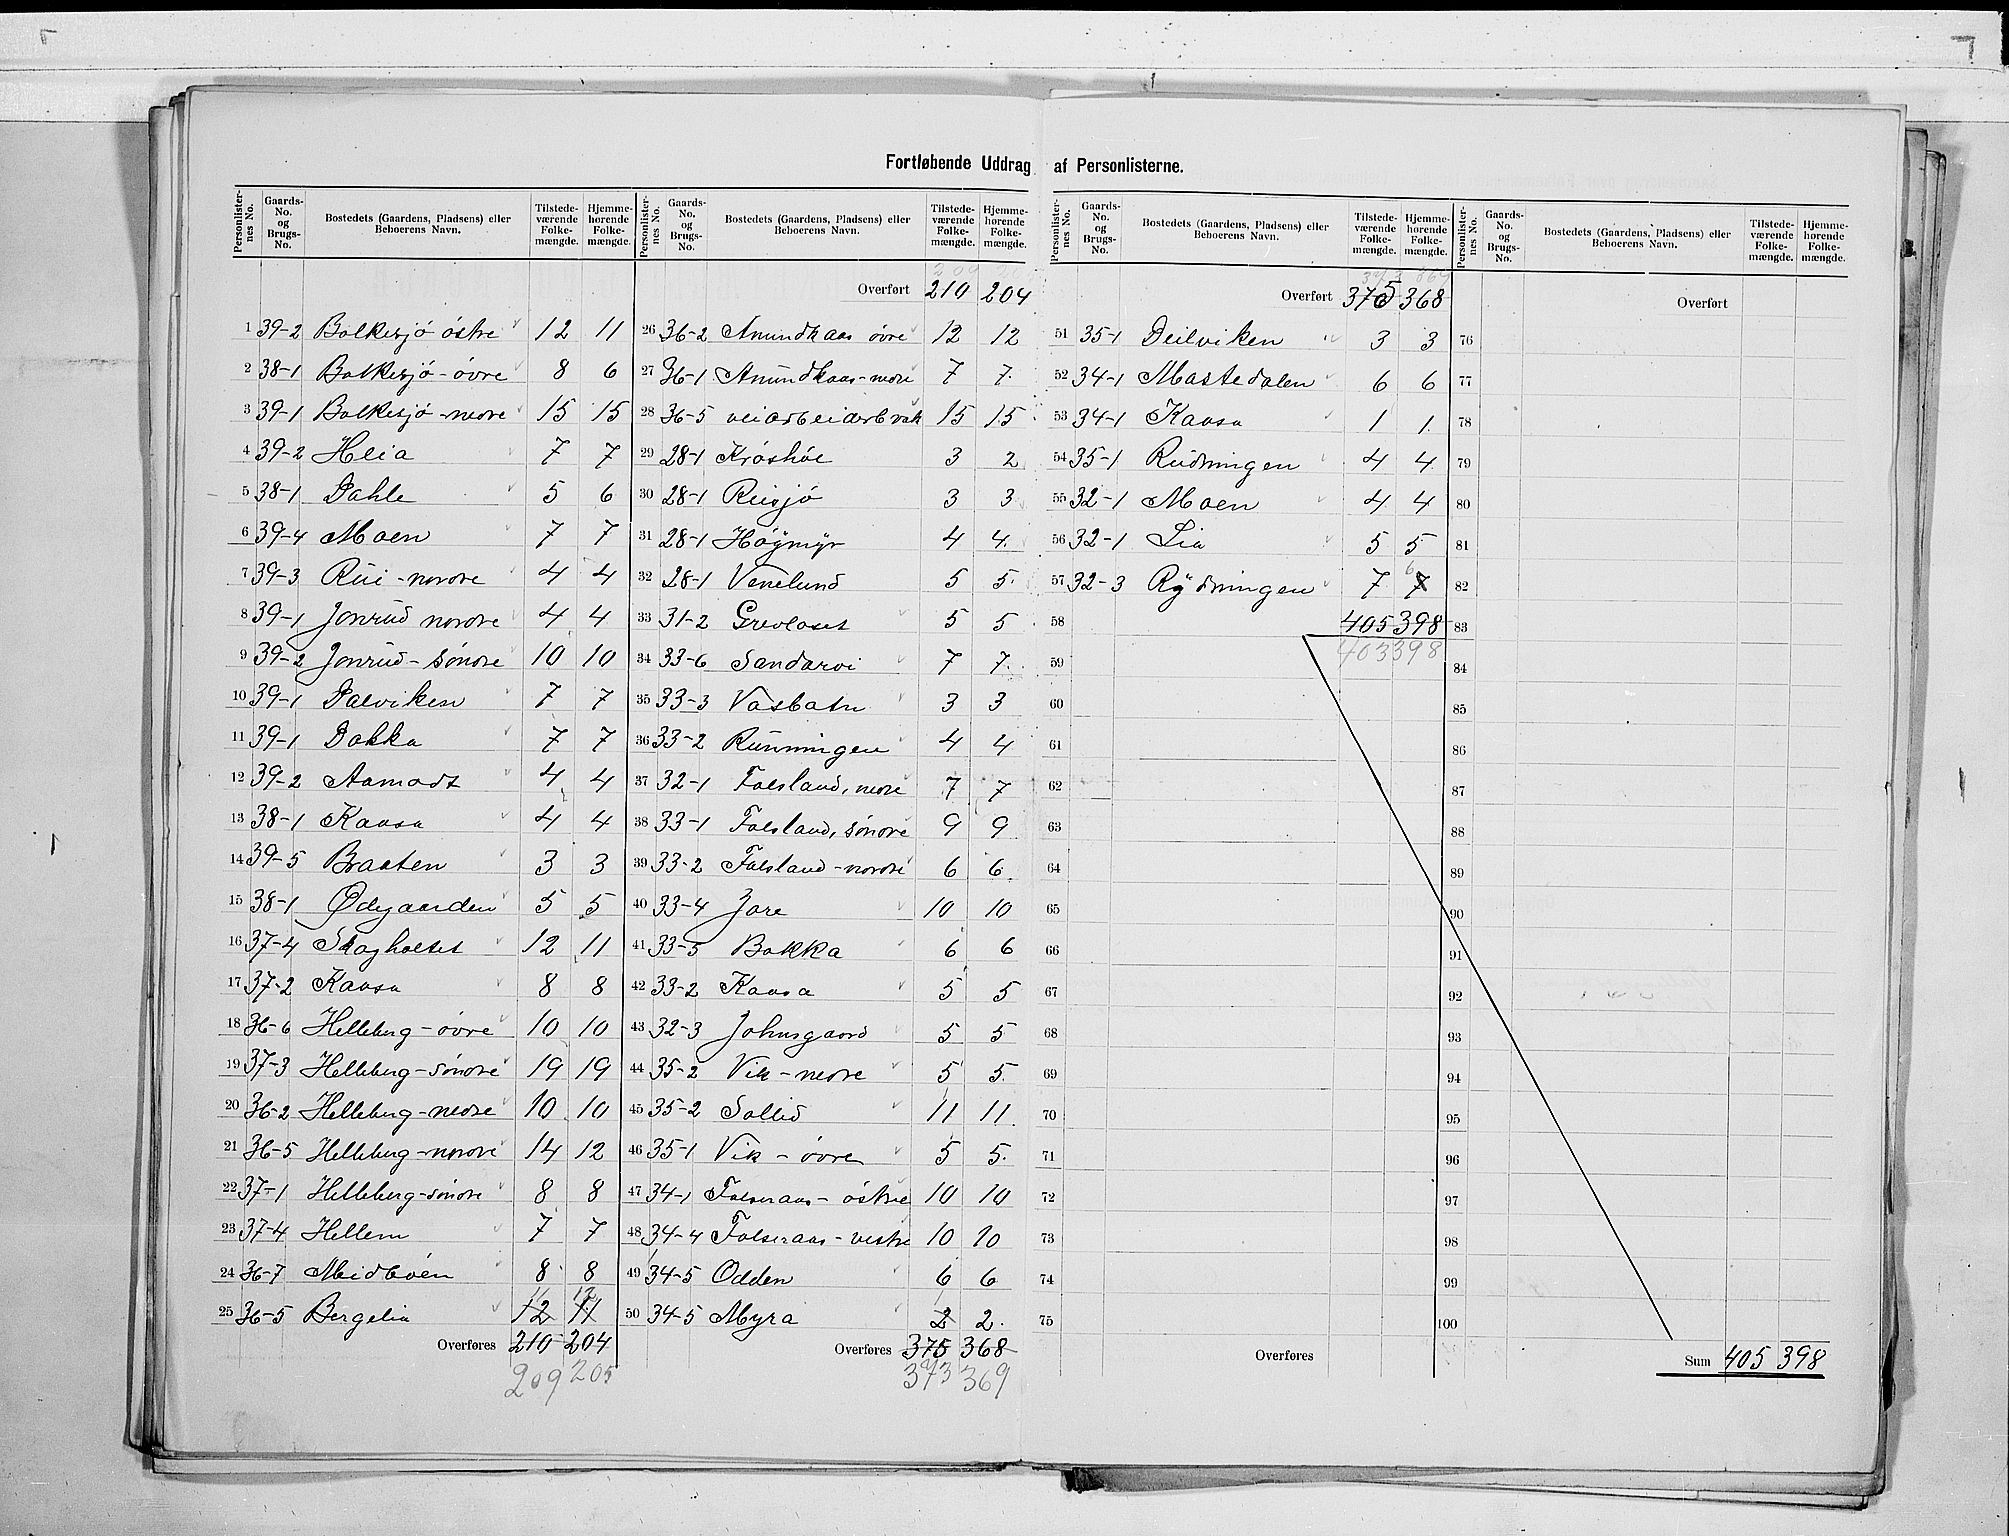 Fortløbende Uddrag af Personlisterne.
Personlister-nes No. Gaards-No. og Brugs-No. Bostedets (Gaardens, Pladsens) eller Beboerens Navn. Tilstede-værende Folke-mængde. Hjemme-hørende Folke-mængde.
1 39-2 Bolkesjø østre 12 11
2 38-1 Bolkesjø-øvre 8 6
3 39-1 Bolkesjø-nedre 15 15
4 39-2 Heia 7 7
5 38-1 Dahle 5 6
6 39-4 Moen 7 7
7 39-3 Rui-nordre 4 4
8 39-1 Jonrud nordre 4 4
9 39-2 Jonrud-søndre 10 10
10 39-1 Dalviken 7 7
11 39-1 Dokka 7 7
12 39-2 Aamodt 4 4
13 38-1 Kaasa 4 4
14 39-5 Braaten 3 3
15 38-1 Ødegaarden 5 5
16 37-4 Skogholtet 12 11
17 37-2 Kaasa 8 8
18 36-6 Helleberg-øvre 10 10
19 37-3 Helleberg-søndre 19 19
20 36-2 Helleberg-nedre 10 10
21 36-5 Helleberg-nordre 14 12
22 37-1 Helleberg-søndre 8 8
23 37-4 Hellem 7 7
24 36-7 Midbøen 8 8
11 12
25 36-5 Bergelia 12 11
Overføres 210 204
209 205
Personlister-nes No. Gaards-No. og Brugs-No. Bostedets (Gaardens, Pladsens) eller Beboerens Navn. Tilstede-værende Folke-mængde. Hjemme-hørende Folke-mængde.
209 205
Overført 210 204
26 36-2 Amundkaas øvre 12 12
27 36-1 Amundkaas-nedre 7 7.
28 36-5 veiarbeiderbrak 15 15
29 28-1 Krøshøe 3 2
30 28-1 Reisjø 3 3
31 28-1 Høgmyr 4 4.
32 28-1 Venelund 5 5.
33 31-2 Grevlaset 5 5
34 33-6 Sandarvi 7 7.
35 33-3 Vasbotn 3 3
36 33-2 Runningen 4 4
37 32-1 Folsland, nedre 7 7
38 33-1 Folsland, søndre 9 9
39 33-2 Folsland-nordre 6 6.
40 33-4 Jore 10 10
41 33-5 Bakka 6 6
42 33-2 Kaasa 5 5
43 32-3 Johnsgaard 5 5
44 35-2 Vik-nedre 5 5.
45 35-2 Sollid 11 11.
46 35-1 Vik-øvre 5 5.
47 34-1 Folseraas-østre 10 10
48 34-4 Folseraas-vestre 10 10
49 34-5 Odden 6 6
50 34-5 Myra 2 2.
Overføres 375 368
373 369
Personlister-nes No. Gaards-No. og Brugs-No. Bostedets (Gaardens, Pladsens) eller Beboerens Navn. Tilstede-værende Folke-mængde. Hjemme-hørende Folke-mængde.
373 369
Overført 375 368
51 35-1 Deilviken 3 3
52 34-1 Mastedalen 6 6
53 34-1 Kaasa 1 1.
54 35-1 Rudningen 4 4
55 32-1 Moen 4 4
56 32-1 Lia 5 5
6
57 32-3 Rydningen 7 7
58 405 398
403 398
59
60
61
62
63
64
65
66
67
68
69
70
71
72
73
74
75
Overføres
Personlister-nes No. Gaards-No. og Brugs-No. Bostedets (Gaardens, Pladsens) eller Beboerens Navn. Tilstede-værende Folke-mængde. Hjemme-hørende Folke-mængde.
Overført
76
77
78
79
80
81
82
83
84
85
86
87
88
89
90
91
92
93
94
95
96
97
98
99
100
Sum 405 398